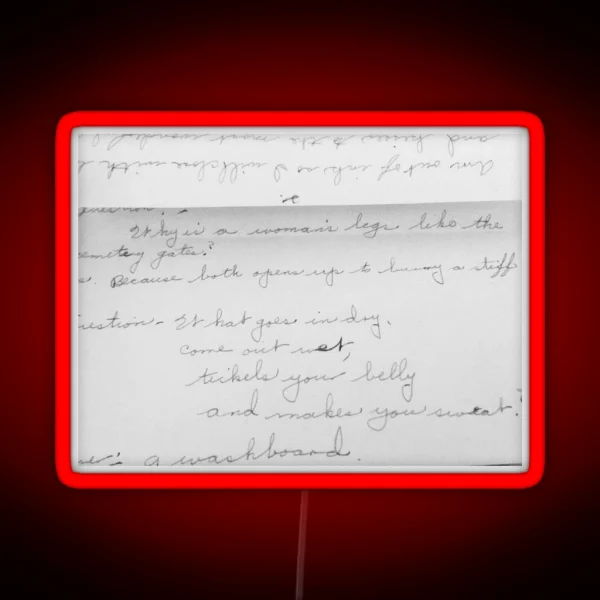 Am out of ink so I will close with
and kisses to the most
uestion:
Why is a woman's legs like the
emetery gates?
s. Because both opens up to burry a stiff
uestion - What goes in dry,
come out wet,
tickels your belly
and makes you sweat?
a washboard.